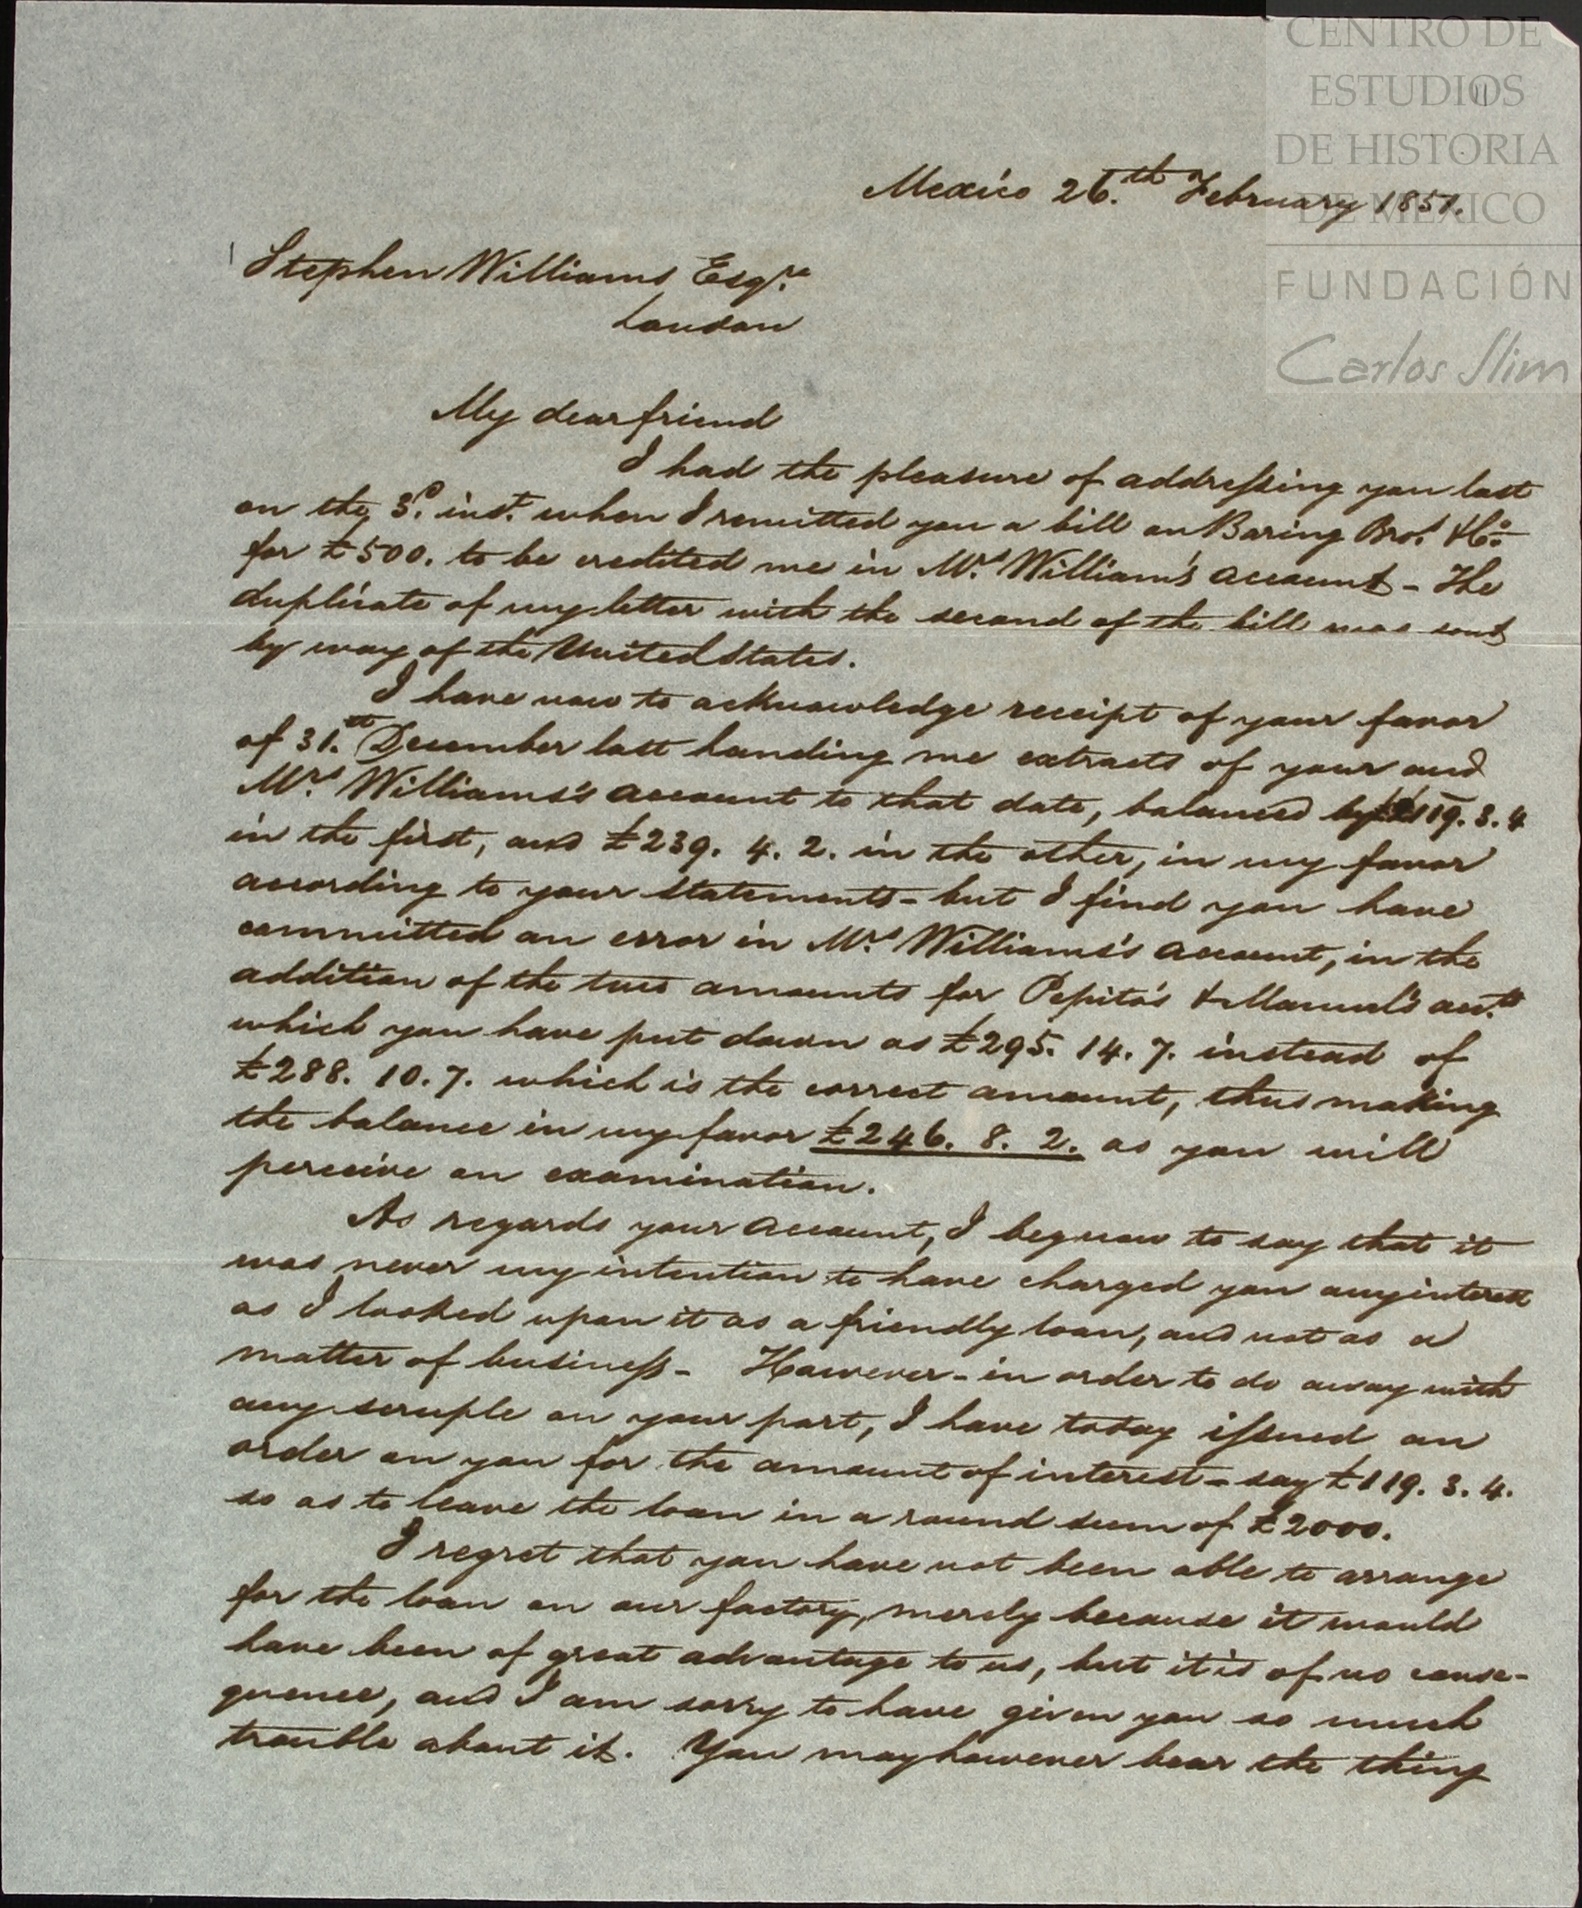 CENTRO DE
ESTUDIOS
DE HISTORIA
DE MEXICO
FUNDACIÓN
Carlos Slim
11
Mexico 26.th February 1851.
Stephen Williams Esqre.
London
My dear friend
I had the pleasure of addressing you last
on the 3d. inst. when I remitted you a bill on Baring Bros. & Co.
for £500. to be credited me in Mrs. William's account - The
duplicate of my letter with the second of the bill was sent
by way of the United States.
I have now to acknowledge receipt of your favor
of 31.st December last handing me extracts of your and
Mrs. Williams's account to that date, balanced by 119. 3. 4
in the first, and £239. 4. 2. in the other, in my favor
according to your statements - but I find you have
committed an error in Mrs. Williams's account, in the
addition of the two amounts for Pepita's & Manuel's acts.
which you have put down as £295. 14. 7. instead of
£288. 10. 7. which is the correct amount, thus making
the balance in my favor £246. 8. 2. as you will
perceive on examination.
As regards your account, I beg now to say that it
was never my intention to have charged you any interest
as I looked upon it as a friendly loan, and not as a
matter of business - However - in order to do away with
any scruple on your part, I have today issued an
order on you for the amount of interest - say £119. 3. 4.
so as to leave the loan in a round sum of £2000.
I regret that you have not been able to arrange
for the loan on our factory, merely because it would
have been of great advantage to us, but it is of no conse-
quence, and I am sorry to have given you so much
trouble about it. You may however bear the thing